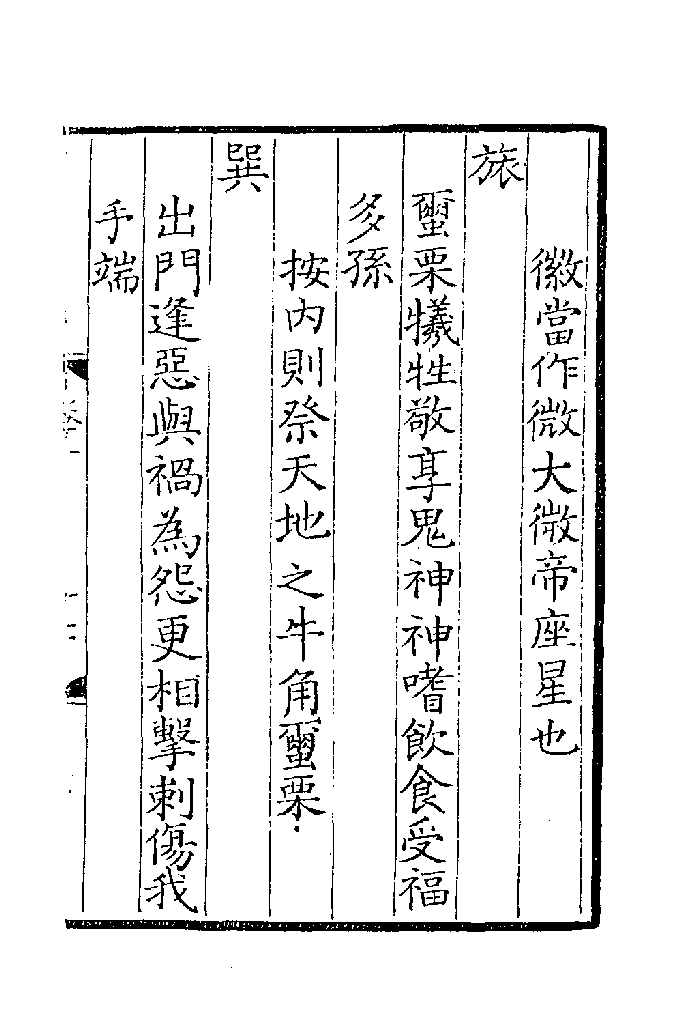 徽當作微大微帝座星也
旅
蠒栗犧牲敬享鬼神神嗜飲食受福
多孫
按内則祭天地之牛角蠒栗
巽
出門逢惡與禍為怨更相擊刺傷我
手端